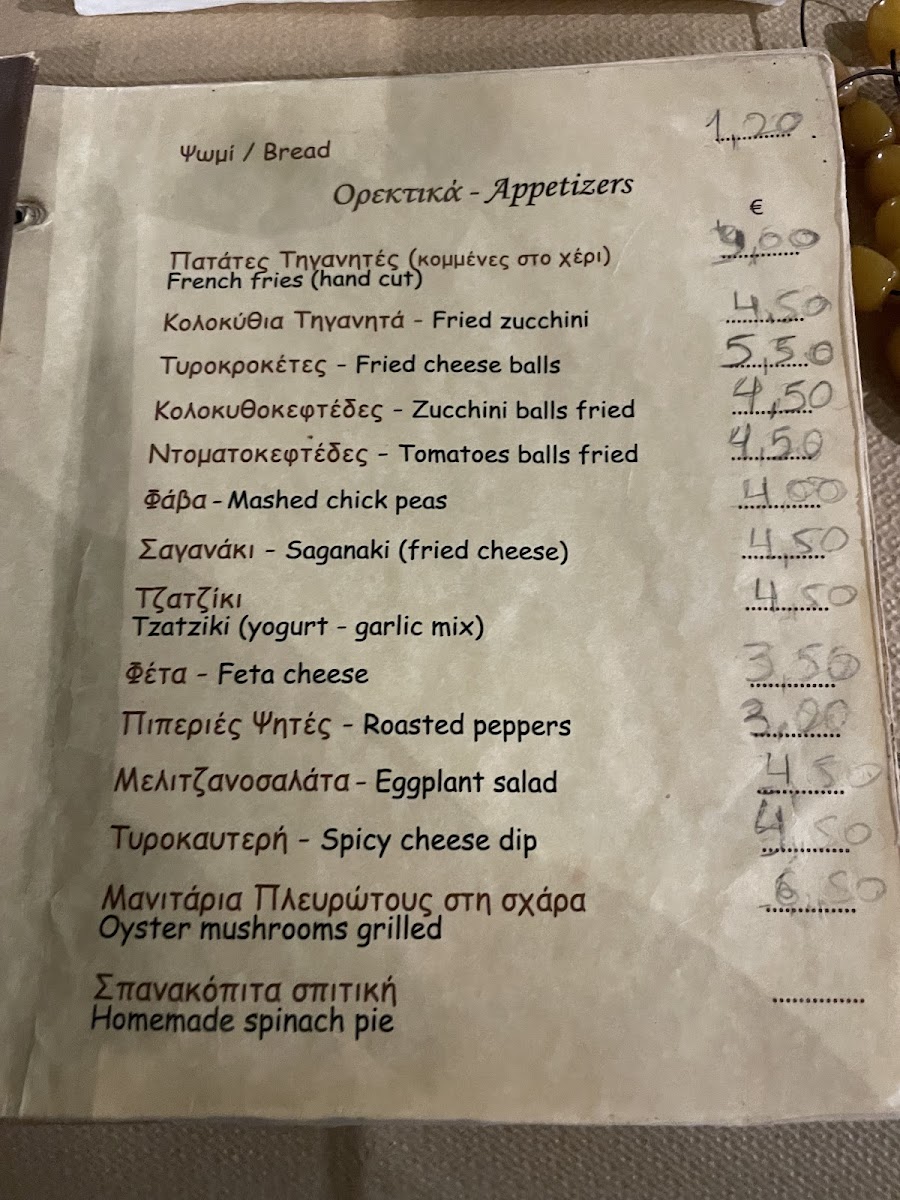 Ψωμί / Bread 1,20
Ορεκτικά - Appetizers
€
Πατάτες Τηγανητές (κομμένες στο χέρι)
French fries (hand cut)
Κολοκύθια Τηγανητά - Fried zucchini 4,50
Τυροκροκέτες - Fried cheese balls 5,50
Κολοκυθοκεφτέδες - Zucchini balls fried 4,50
Ντοματοκεφτέδες - Tomatoes balls fried 4,50
Φάβα - Mashed chick peas 4,00
Σαγανάκι - Saganaki (fried cheese) 4,50
Τζατζίκι 4,50
Tzatziki (yogurt - garlic mix)
Φέτα - Feta cheese 3,50
Πιπεριές Ψητές - Roasted peppers 3,00
Μελιτζανοσαλάτα - Eggplant salad 4,50
Τυροκαυτερή - Spicy cheese dip 4,50
Μανιτάρια Πλευρώτους στη σχάρα 6,50
Oyster mushrooms grilled
Σπανακόπιτα σπιτική
Homemade spinach pie